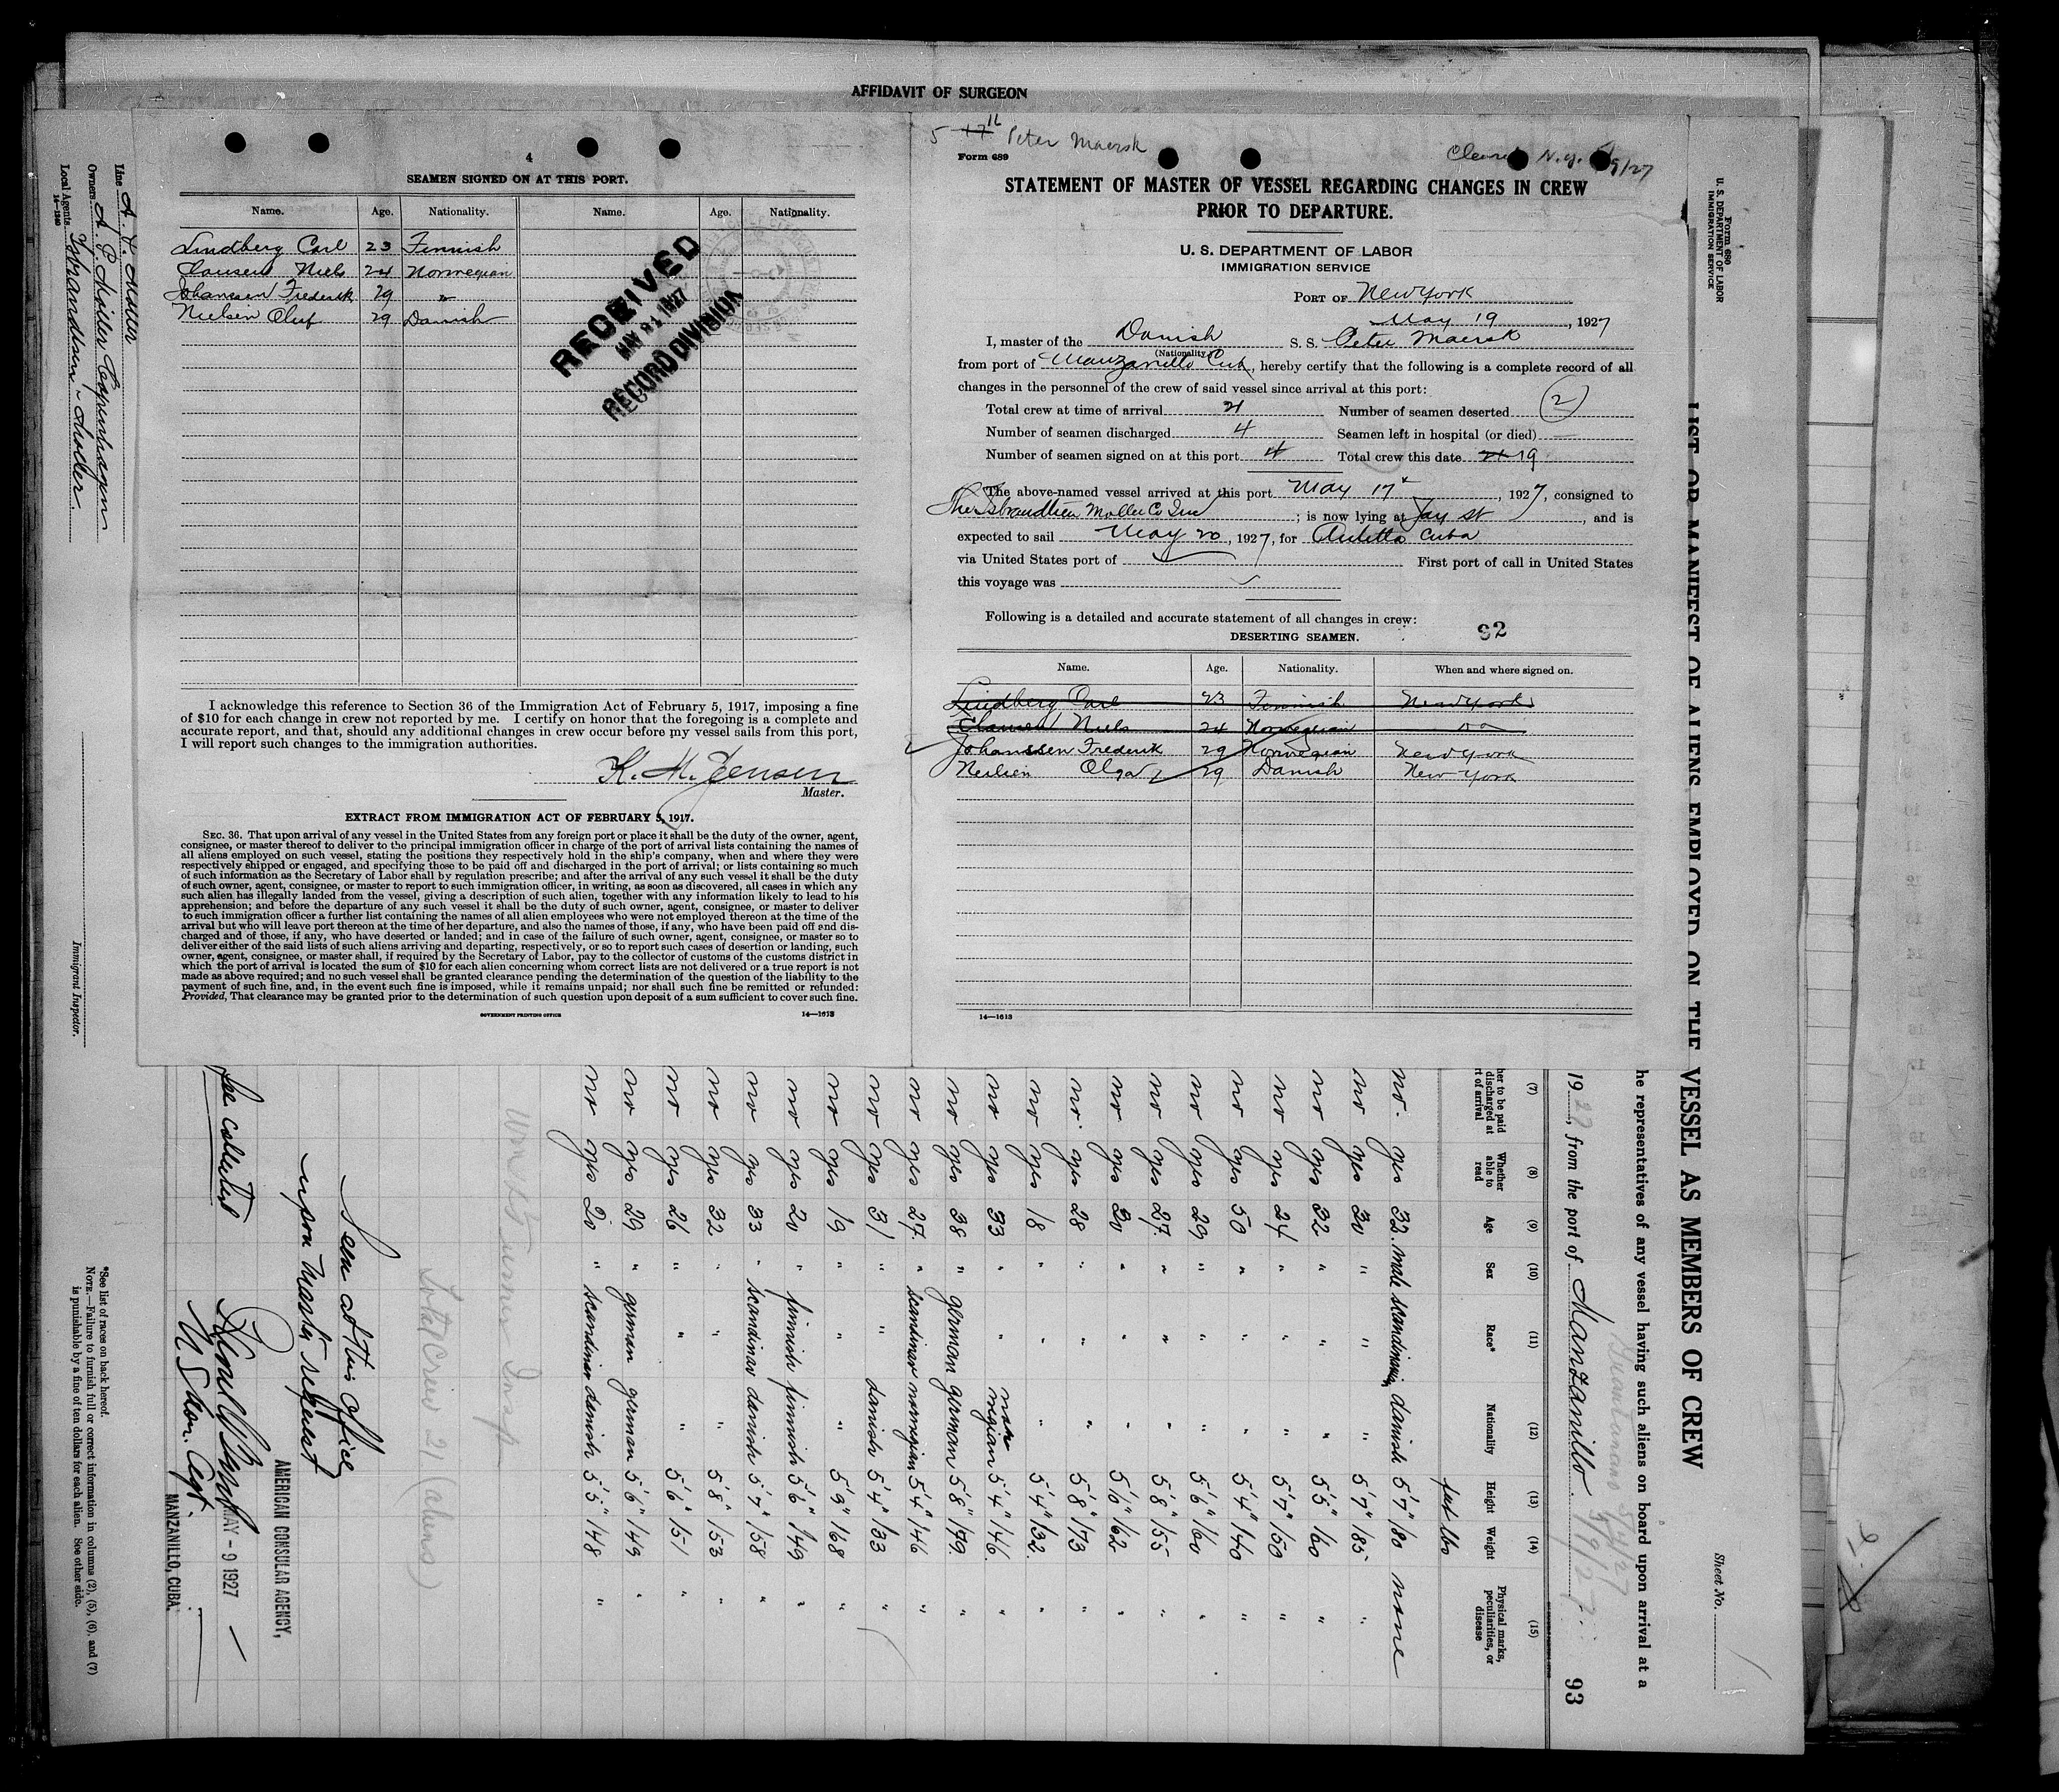 AFFIDAVIT OF SURGEON
4
SEAMEN SIGNED ON AT THIS PORT.
Name. Age. Nationality. Name. Age. Nationality.
Lindberg Carl 23 Finnish
Clausen Niels 24 Norwegian
Johanssen Frederik 29 "
Nielsen Oluf 29 Danish
RECEIVED
MAY 21 1927
RECORD DIVISION
I acknowledge this reference to Section 36 of the Immigration Act of February 5, 1917, imposing a fine
of $10 for each change in crew not reported by me. I certify on honor that the foregoing is a complete and
accurate report, and that, should any additional changes in crew occur before my vessel sails from this port,
I will report such changes to the immigration authorities.
K. M. Jensen
Master.
EXTRACT FROM IMMIGRATION ACT OF FEBRUARY 5, 1917.
SEC. 36. That upon arrival of any vessel in the United States from any foreign port or place it shall be the duty of the owner, agent,
consignee, or master thereof to deliver to the principal immigration officer in charge of the port of arrival lists containing the names of
all aliens employed on such vessel, stating the positions they respectively hold in the ship's company, when and where they were
respectively shipped or engaged, and specifying those to be paid off and discharged in the port of arrival; or lists containing so much
of such information as the Secretary of Labor shall by regulation prescribe; and after the arrival of any such vessel it shall be the duty
of such owner, agent, consignee, or master to report to such immigration officer, in writing, as soon as discovered, all cases in which any
such alien has illegally landed from the vessel, giving a description of such alien, together with any information likely to lead to his
apprehension; and before the departure of any such vessel it shall be the duty of such owner, agent, consignee, or master to deliver
to such immigration officer a further list containing the names of all alien employees who were not employed thereon at the time of the
arrival but who will leave port thereon at the time of her departure, and also the names of those, if any, who have been paid off and dis-
charged and of those, if any, who have deserted or landed; and in case of the failure of such owner, agent, consignee, or master so to
deliver either of the said lists of such aliens arriving and departing, respectively, or so to report such cases of desertion or landing, such
owner, agent, consignee, or master shall, if required by the Secretary of Labor, pay to the collector of customs of the customs district in
which the port of arrival is located the sum of $10 for each alien concerning whom correct lists are not delivered or a true report is not
made as above required; and no such vessel shall be granted clearance pending the determination of the question of the liability to the
payment of such fine, and, in the event such fine is imposed, while it remains unpaid; nor shall such fine be remitted or refunded:
Provided, That clearance may be granted prior to the determination of such question upon deposit of a sum sufficient to cover such fine.
GOVERNMENT PRINTING OFFICE 14—1613
5 17 16 Peter Maersk
Form 689
STATEMENT OF MASTER OF VESSEL REGARDING CHANGES IN CREW
PRIOR TO DEPARTURE.
U. S. DEPARTMENT OF LABOR
IMMIGRATION SERVICE
PORT OF New York
May 19, 1927
I, master of the Danish S. S. Peter Maersk
(Nationality)
from port of Manzanillo Cuba, hereby certify that the following is a complete record of all
changes in the personnel of the crew of said vessel since arrival at this port:
Total crew at time of arrival 21 Number of seamen deserted (2)
Number of seamen discharged 4 Seamen left in hospital (or died) —
Number of seamen signed on at this port 4 Total crew this date 21 19
The above-named vessel arrived at this port May 17, 1927, consigned to
Isbrandtsen Moller Co Inc; is now lying at Jay St, and is
expected to sail May 20, 1927, for Cuba
via United States port of First port of call in United States
this voyage was
Following is a detailed and accurate statement of all changes in crew:
DESERTING SEAMEN. 92
Name. Age. Nationality. When and where signed on.
Lindberg Carl 23 Finnish New York
Clausen Niels 24 Norwegian do
Johanssen Frederik 29 Norwegian New York
Neilsen Olga 29 Danish New York
14—1613
Form 680
U. S. DEPARTMENT OF LABOR
IMMIGRATION SERVICE
Sheet No.
LIST OR MANIFEST OF ALIENS EMPLOYED ON THE VESSEL AS MEMBERS OF CREW
he representatives of any vessel having such aliens on board upon arrival at a
Guantanamo 5/4/27
19 27, from the port of Manzanillo 5/9/27 93
(7) (8) (9) (10) (11) (12) (13) (14) (15)
her to be paid discharged at rt of arrival Whether able to read Age Sex Race* Nationality Height Weight Physical marks, peculiarities, or disease
lbs
no yes 32 male scandinavian danish 5'7" 180 none
no yes 30 " " " 5'7" 185 "
no yes 32 " " " 5'5" 160 "
no yes 24 " " " 5'7" 150 "
no yes 50 " " " 5'4" 140 "
no yes 29 " " " 5'6" 160 "
no yes 27 " " " 5'8" 155 "
no yes 30 " " " 5'6" 162 "
no yes 28 " " " 5'8" 173 "
no yes 18 " " " 5'4" 132 "
no yes 33 " " norwegian 5'4" 146 "
no yes 38 " german german 5'8" 179 "
no yes 27 " scandinav norwegian 5'4" 146 "
no yes 31 " " danish 5'4" 133 "
no yes 19 " " " 5'9" 168 "
no yes 20 " finnish finnish 5'6" 149 "
no yes 33 " scandinav danish 5'7" 158 "
no yes 32 " " " 5'8" 153 "
no yes 26 " " " 5'6" 151 "
no yes 29 " german german 5'6" 149 "
no yes 20 " scandinav danish 5'5" 148 "
Total Crew 21 (aliens)
Seen at this office
upon master's request
AMERICAN CONSULAR AGENCY,
MAY - 9 1927
MANZANILLO, CUBA.
fee collected
*See list of races on back hereof.
NOTE.—Failure to furnish full or correct information in columns (2), (5), (6), and (7)
is punishable by a fine of ten dollars for each alien. See other side.
Line
Owners A. P. Moller Copenhagen
Local Agents Isbrandtsen - Moller
14—1240
Immigrant Inspector.